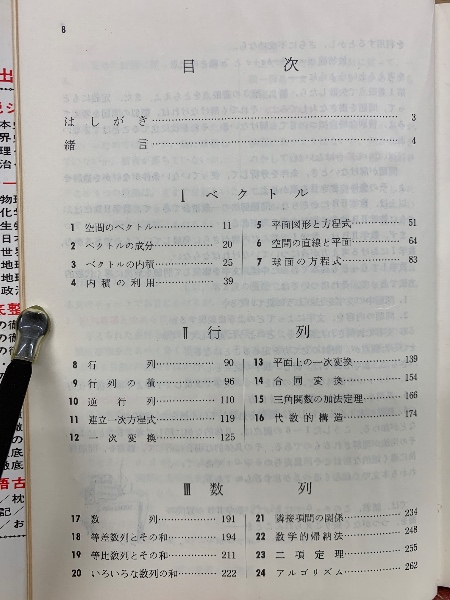 8
目 次
はしがき 3
緒言 4
Ⅰ ベクトル
1 空間のベクトル 11
2 ベクトルの成分 20
3 ベクトルの内積 25
4 内積の利用 39
5 平面図形と方程式 51
6 空間の直線と平面 64
7 球面の方程式 83
Ⅱ 行列
8 行列 90
9 行列の積 96
10 逆行列 110
11 連立一次方程式 119
12 一次変換 125
13 平面上の一次変換 139
14 合同変換 154
15 三角関数の加法定理 166
16 代数的構造 174
Ⅲ 数列
17 数列 191
18 等差数列とその和 194
19 等比数列とその和 211
20 いろいろな数列の和 222
21 隣接項間の関係 234
22 数学的帰納法 248
23 二項定理 255
24 アルゴリズム 262